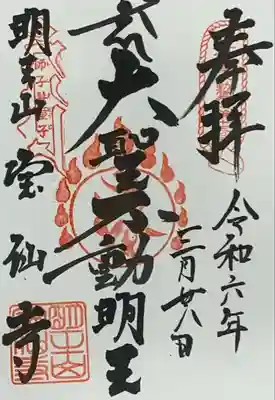 奉拝
令和六年
三月廿八日
大聖不動明王
明王山宝仙寺